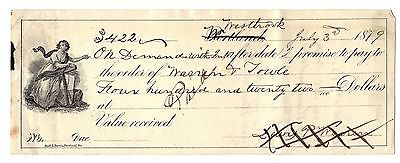 Westbrook
$422 July 3d 1879
On Demand with Int after date I promise to pay to
the order of Warren & Towle
Four hundred and twenty two Dollars
at
Value received
No. Due